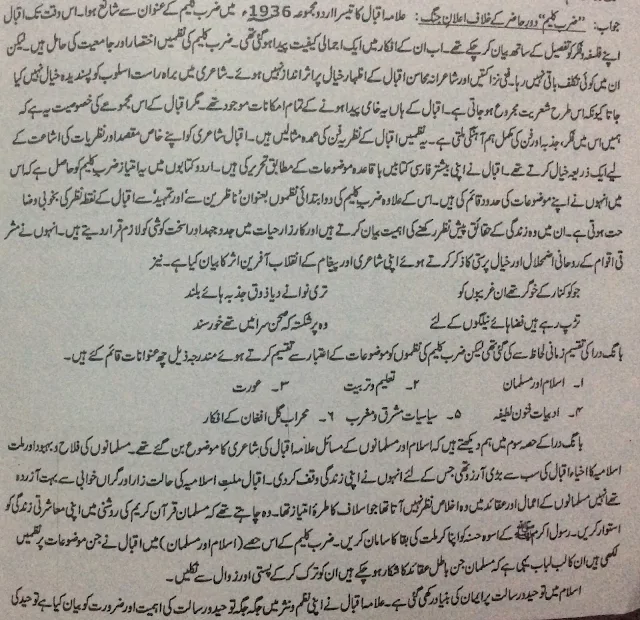 جواب: "ضرب کلیم" دور حاضر کے خلاف اعلان جنگ: علامہ اقبال کا تیسرا اردو مجموعہ 1936ء میں ضرب کلیم کے عنوان سے شائع ہوا۔ اس وقت تک اقبال
اپنے فلسفہ و فکر کو تفصیل کے ساتھ بیان کر چکے تھے۔ اب ان کے افکار میں ایک اجمالی کیفیت پیدا ہو گئی تھی۔ ضرب کلیم کی نظمیں اختصار اور جامعیت کی حامل ہیں۔ لیکن
ان میں کوئی تکلف باقی نہیں رہا۔ فنی نزاکتیں اور شاعرانہ محاسن اقبال کے اظہار خیال پر اثر انداز نہیں ہوئے۔ شاعری میں براہ راست اسلوب کو پسندیدہ خیال نہیں کیا
جاتا کیونکہ اس طرح شعریت مجروح ہو جاتی ہے۔ اقبال کے ہاں یہ خامی پیدا ہونے کے تمام امکانات موجود تھے۔ مگر اقبال کے اس مجموعے کی خصوصیت یہ ہے کہ
ہمیں اس میں فکر، جذبہ اور فن کی مکمل ہم آہنگی ملتی ہے۔ یہ نظمیں اقبال کے نظریہ فن کی عمدہ مثالیں ہیں۔ اقبال شاعری کو اپنے خاص مقصد اور نظریات کی اشاعت کے
لیے ایک ذریعہ خیال کرتے تھے۔ اقبال نے اپنی بیشتر فارسی کتابیں باقاعدہ موضوعات کے مطابق تحریر کی ہیں۔ اردو کتابوں میں یہ امتیاز ضرب کلیم کو حاصل ہے کہ اس
میں انہوں نے اپنے موضوعات کی حدود قائم کی ہیں۔ اس کے علاوہ ضرب کلیم کی دو ابتدائی نظموں بعنوان 'ناظرین سے' اور 'تمہید' سے اقبال کے نقطہ نظر کی بخوبی وضا
حت ہوتی ہے۔ ان میں وہ زندگی کے حقائق پیش نظر رکھنے کی اہمیت بیان کرتے ہیں اور کارزار حیات میں جد و جہد اور سخت کوشی کو لازم قرار دیتے ہیں۔ انہوں نے مشر
قی اقوام کے روحانی اضمحلال اور خیال پرستی کا ذکر کرتے ہوئے اپنی شاعری اور پیغام کے انقلاب آفرین اثر کا بیان کیا ہے۔ نیز
جو کوکنار کے خوگر تھے ان غریبوں کو تری نوا نے دیا ذوق جذبہ ہائے بلند
تڑپ رہے ہیں فضا ہائے نیلگوں کے لئے وہ پر شکستہ کہ صحن سرا میں تھے خورسند
بانگ درا کی تقسیم زمانی لحاظ سے کی گئی تھی لیکن ضرب کلیم کی نظموں کو موضوعات کے اعتبار سے تقسیم کرتے ہوئے مندرجہ ذیل چھ عنوانات قائم کئے ہیں۔
۱۔ اسلام اور مسلمان ۲۔ تعلیم و تربیت ۳۔ عورت
۴۔ ادبیات فنون لطیفہ ۵۔ سیاسیات مشرق و مغرب ۶۔ محراب گل افغان کے افکار
بانگ درا کے حصہ سوم میں ہم دیکھتے ہیں کہ اسلام اور مسلمانوں کے مسائل علامہ اقبال کی شاعری کا موضوع بن گئے تھے۔ مسلمانوں کی فلاح و بہبود اور ملت
اسلامیہ کا احیاء اقبال کی سب سے بڑی آرزو تھی جس کے لئے انہوں نے اپنی زندگی وقف کر دی۔ اقبال ملت اسلامیہ کی حالت زار اور گراں خوابی سے بہت آزردہ
تھے انہیں مسلمانوں کے اعمال اور عقائد میں وہ اخلاص نظر نہیں آتا تھا جو اسلاف کا طرۂ امتیاز تھا۔ وہ چاہتے تھے کہ مسلمان قرآن کریم کی روشنی میں اپنی معاشرتی زندگی کو
استوار کریں۔ رسول اکرم ﷺ کے اسوہ حسنہ کو اپنا کر ملت کی بقا کا سامان کریں۔ ضرب کلیم کے اس حصے (اسلام اور مسلمان) میں اقبال نے جن موضوعات پر نظمیں
لکھی ہیں ان کا لب لباب یہی ہے کہ مسلمان جن باطل عقائد کا شکار ہو چکے ہیں ان کو ترک کر کے پستی اور زوال سے نکلیں۔
اسلام میں توحید و رسالت پر ایمان کی بنیاد رکھی گئی ہے۔ علامہ اقبال نے اپنی نظم و نثر میں جگہ جگہ توحید و رسالت کی اہمیت اور ضرورت کو بیان کیا ہے توحید کی